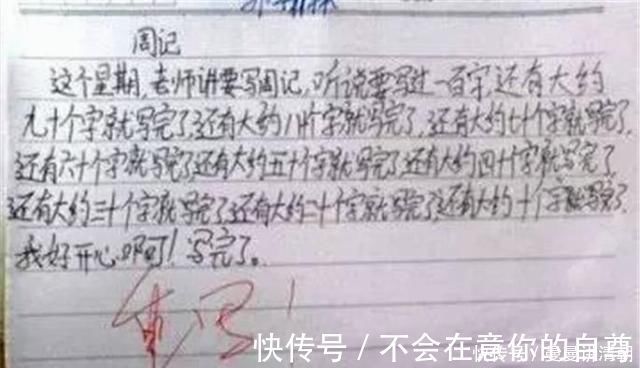 周记
这个星期,老师讲要写周记,听说要写过一百字还有大约
九十个字就写完了,还有大约八十个字就写完了,还有大约七十个字就写完了,
还有六十个字就写完了还有大约五十个字就写完了还有大约四十个字就写完了
还有大约三十个字就写完了,还有大约二十个字就写完了,还有大约十个字就写完了,
我好开心啊!写完了。
重写!
快传号 / 不会在意你的自尊
快传号 /